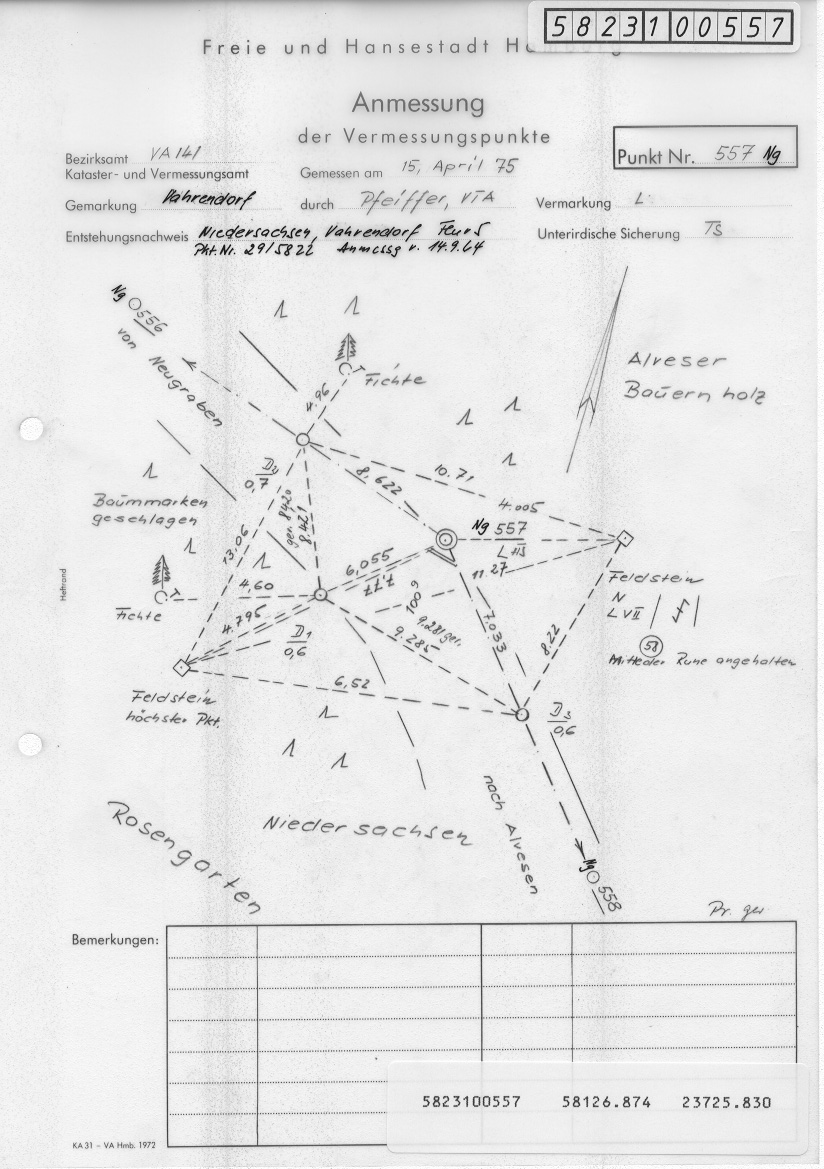 5823100557
Freie und Hansestadt Hamburg
Anmessung
der Vermessungspunkte
Punkt Nr. 557 Ng
Bezirksamt VA 141
Kataster- und Vermessungsamt
Gemessen am 15. April 75
Gemarkung Vahrendorf
durch Pfeiffer, VTA
Vermarkung L
Entstehungsnachweis Niedersachsen, Vahrendorf Flur 5
Pkt.Nr. 29/5822 Anmessg v. 14.9.64
Unterirdische Sicherung TS
Ng 556
von Neugraben
Fichte
Alveser
Bauernholz
4.96
D2
0,7
8.622
10.71
4.005
Baummarken
geschlagen
gem 8.420
8.421
13.06
Ng 557
L TS
6,055
7.77
11.27
Heftrand
Fichte
4,60
4.795
D1
0,6
1.009
9.281 ger.
9.285
7.033
8.22
Feldstein
N
L VII
58
Mitte der Rune angehalten
Feldstein
höchster Pkt.
6,52
D3
0,6
Niedersachsen
Rosengarten
nach Alvesen
Ng 558
Pr. ger
Bemerkungen:
5823100557 58126.874 23725.830
KA 31 – VA Hmb. 1972